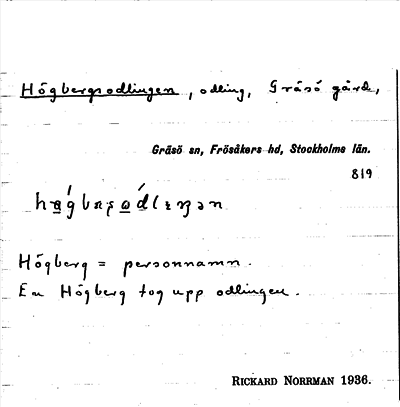 Högbergsodlingen, odling, Gräsö gård,
Gräsö sn, Frösåkers hd, Stockholms län.
819
Högberg = personnamn.
En Högberg tog upp odlingen.
RICKARD NORRMAN 1936.